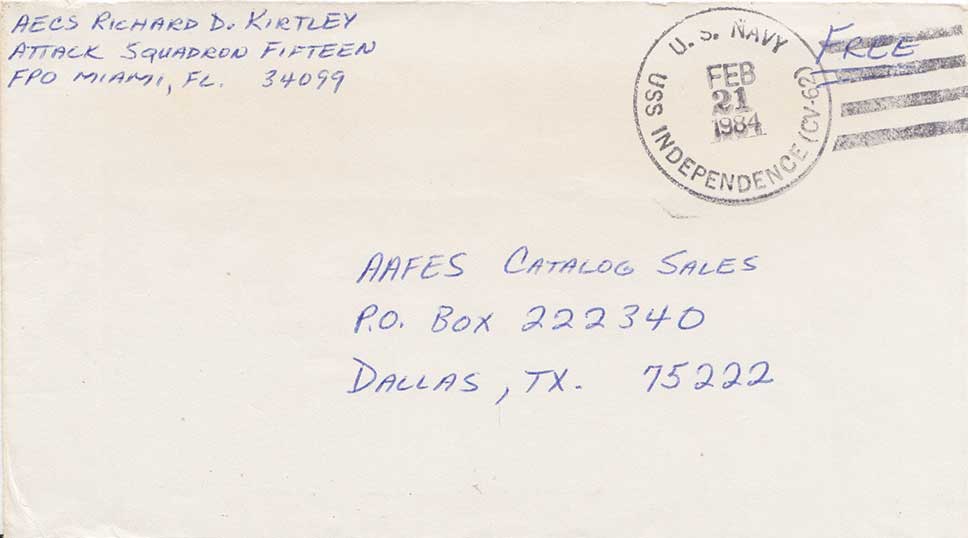 AECS RICHARD D. KIRTLEY
ATTACK SQUADRON FIFTEEN
FPO MIAMI, FL. 34099
U. S. NAVY
FEB
21
1984
USS INDEPENDENCE (CV-62)
FREE
AAFES CATALOG SALES
P.O. BOX 222340
DALLAS, TX. 75222